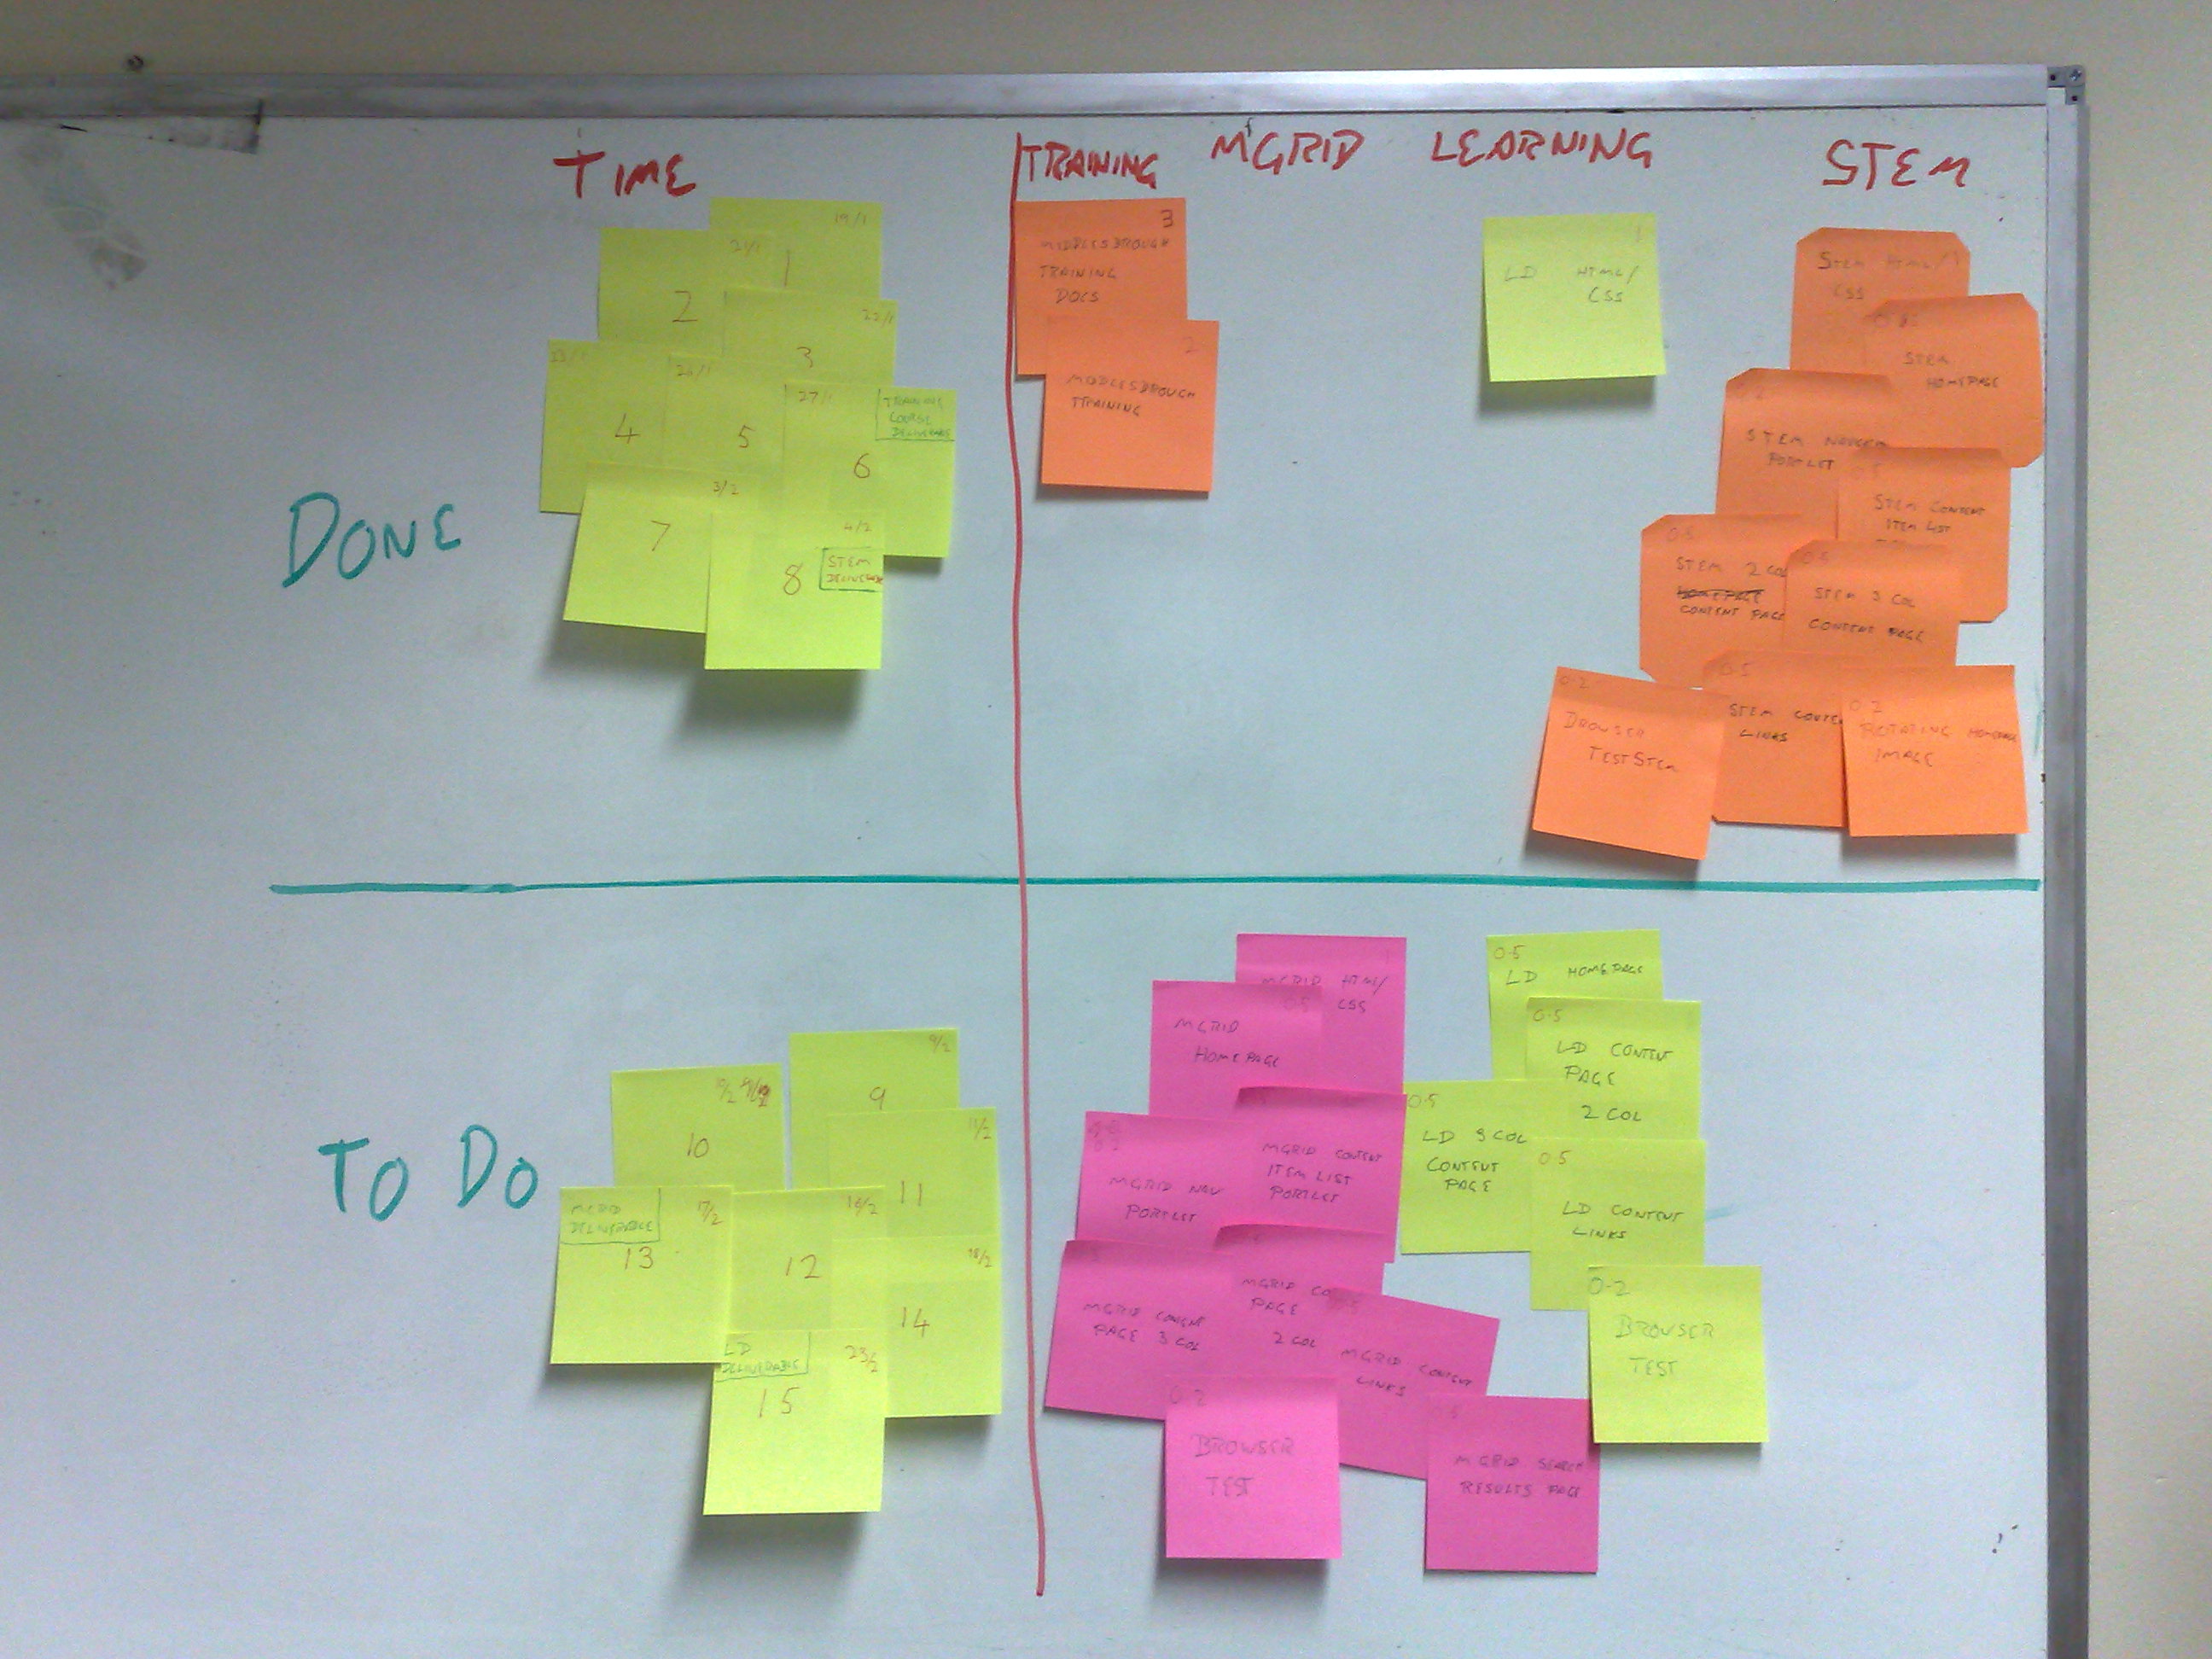 TIME
TRAINING
MGRID
LEARNING
STEM
DONE
19/1
1
21/1
2
22/1
3
23/1
4
26/1
5
27/1
TRAINING
COURSE
DELIVERABLE
6
3/2
7
4/2
8
STEM
DELIVERABLE
3
MIDDLESBROUGH
TRAINING
DOCS
2
MIDDLESBROUGH
TRAINING
1
LD HTML/
CSS
STEM HTML/
CSS
STEM
HOMEPAGE
STEM
PORTLET
STEM CONTENT
ITEM LIST
0.5
STEM 2 COL
HOMEPAGE
CONTENT PAGE
0.5
STEM 3 COL
CONTENT PAGE
0.2
BROWSER
TEST STEM
0.5
STEM
LINKS
0.2
ROTATING HOMEPAGE
IMAGE
TO DO
9/2
9
10/2
10
11/2
11
16/2
12
MGRID
DELIVERABLE
17/2
13
18/2
14
LD
DELIVERABLE
23/2
15
1
MGRID HTML/
CSS
0.5
MGRID
HOMEPAGE
MGRID NAV
PORTLET
MGRID CONTENT
ITEM LIST
PORTLET
MGRID CONTENT
PAGE 3 COL
MGRID
PAGE
2 COL
MGRID CONTENT
LINKS
0.2
BROWSER
TEST
MGRID SEARCH
RESULTS PAGE
0.5
LD HOMEPAGE
0.5
LD CONTENT
PAGE
2 COL
0.5
LD 3 COL
CONTENT
PAGE
0.5
LD CONTENT
LINKS
0.2
BROWSER
TEST